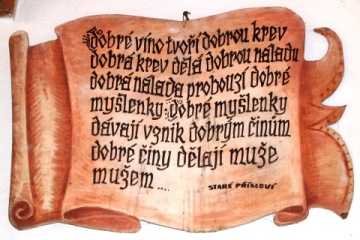 Dobré víno tvoří dobrou krev
dobrá krev dělá dobrou náladu
dobrá nálada probouzí dobré
myšlenky. Dobré myšlenky
dávají vznik dobrým činům
dobré činy dělají muže
mužem ....
STARÉ PŘÍSLOVÍ